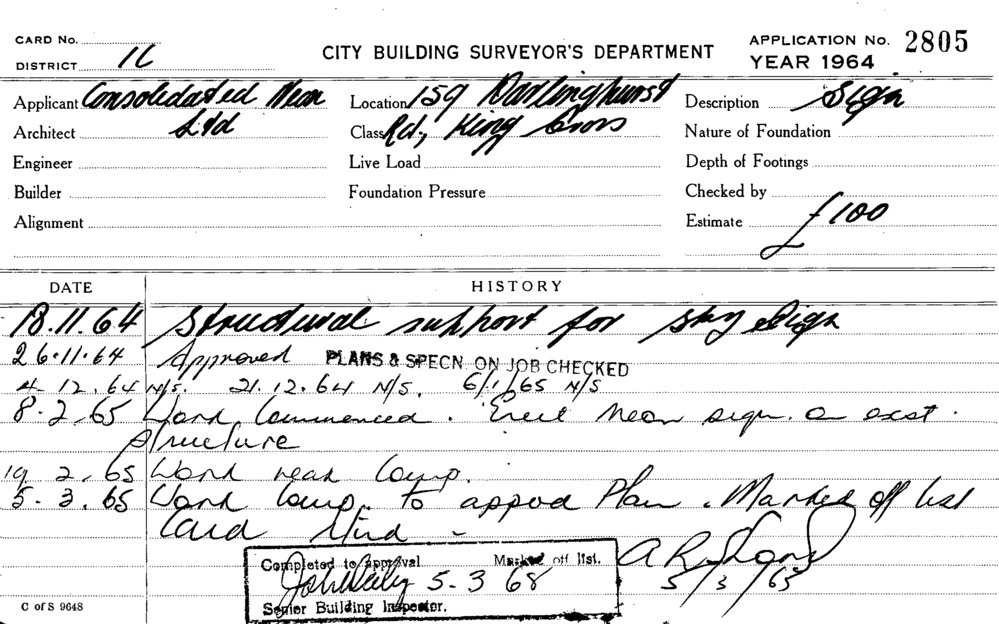 CARD No.
DISTRICT 1L
CITY BUILDING SURVEYOR'S DEPARTMENT
APPLICATION No. 2805
YEAR 1964
Applicant Consolidated Neon
Location 159 Darlinghurst
Description Sign
Architect Ltd
Class Rd, King Cross
Nature of Foundation
Engineer
Live Load
Depth of Footings
Builder
Foundation Pressure
Checked by
Alignment
Estimate £100
DATE HISTORY
18.11.64 Structural support for sky Sign
26.11.64 Approved PLANS & SPECN. ON JOB CHECKED
4.12.64 N/S. 21.12.64 N/S. 6/1/65 N/S
8.2.65 Work Commenced. Erect Neon sign. on exist.
structure
19 2.65 Work near Comp.
5.3.65 Work Comp. to appvd Plan. Marked off list
Card
Completed to approval Marked off list.
5-3 68
Senior Building Inspector.
5/3/65
C of S 9648